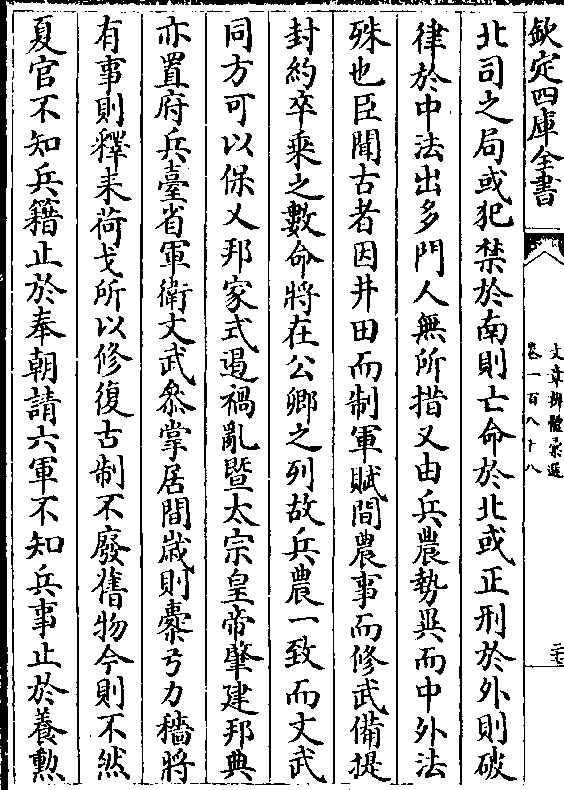 欽定四庫全書
文章辨體彙選
卷一百八十八
北司之局或犯禁於南則亡命於北或正刑於外則破
律於中法出多門人無所措又由兵農勢異而中外法
殊也臣聞古者因井田而制軍賦間農事而修武備提
封約卒乘之數命將在公卿之列故兵農一致而文武
同方可以保乂邦家式遏禍亂暨太宗皇帝肇建邦典
亦置府兵臺省軍衛文武叅掌居閒歲則櫜弓力穡將
有事則釋耒荷戈所以修復古制不廢舊物今則不然
夏官不知兵籍止於奉朝請六軍不知兵事止於養勲